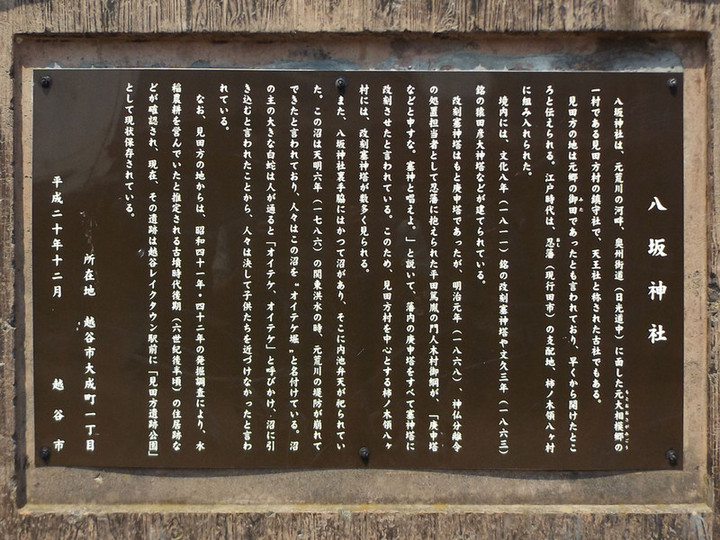 八坂神社
八坂神社は、元荒川の河畔、奥州街道（日光道中）に面した元大相模郷の
一村である見田方村の鎮守社で、天王社と称された古社でもある。
見田方の地は元郷の御田であったとも言われており、早くから開けたとこ
ろと伝えられる。江戸時代は、忍藩（現行田市）の支配地、柿ノ木領八ヶ村
に組み入れられた。
境内には、文化八年（一八一一）銘の改刻塞神塔や文久三年（一八六三）
銘の猿田彦大神塔などが建てられている。
改刻塞神塔はもと庚申塔であったが、明治元年（一八六八）、神仏分離令
の処置担当者として忍藩に抱えられた平田篤胤の門人木村御綱が、「庚申塔
などと申すな、塞神と唱えよ。」と説いて、藩内の庚申塔をすべて塞神塔に
改刻させたと言われている。このため、見田方村を中心とする柿ノ木領八ヶ
村には、改刻塞神塔が数多く見られる。
また、八坂神社裏手脇にはかつて沼があり、そこに内池弁天が祀られてい
た。この沼は天明六年（一七八六）の関東洪水の時、元荒川の堤防が崩れて
できたと言われており、人々はこの沼を〝オイテケ堀〟と名付けている。沼
の主の大きな白蛇は人が通ると「オイテケ、オイテケ」と呼びかけ、沼に引
き込むと言われたことから、人々は決して子供たちを近づけなかったと言わ
れている。
なお、見田方の地からは、昭和四十一年・四十二年の発掘調査により、水
稲農耕を営んでいたと推定される古墳時代後期（六世紀後半頃）の住居跡な
どが確認され、現在、その遺跡は越谷レイクタウン駅前に「見田方遺跡公園」
として現状保存されている。
所在地　越谷市大成町一丁目
平成二十年十二月　越谷市